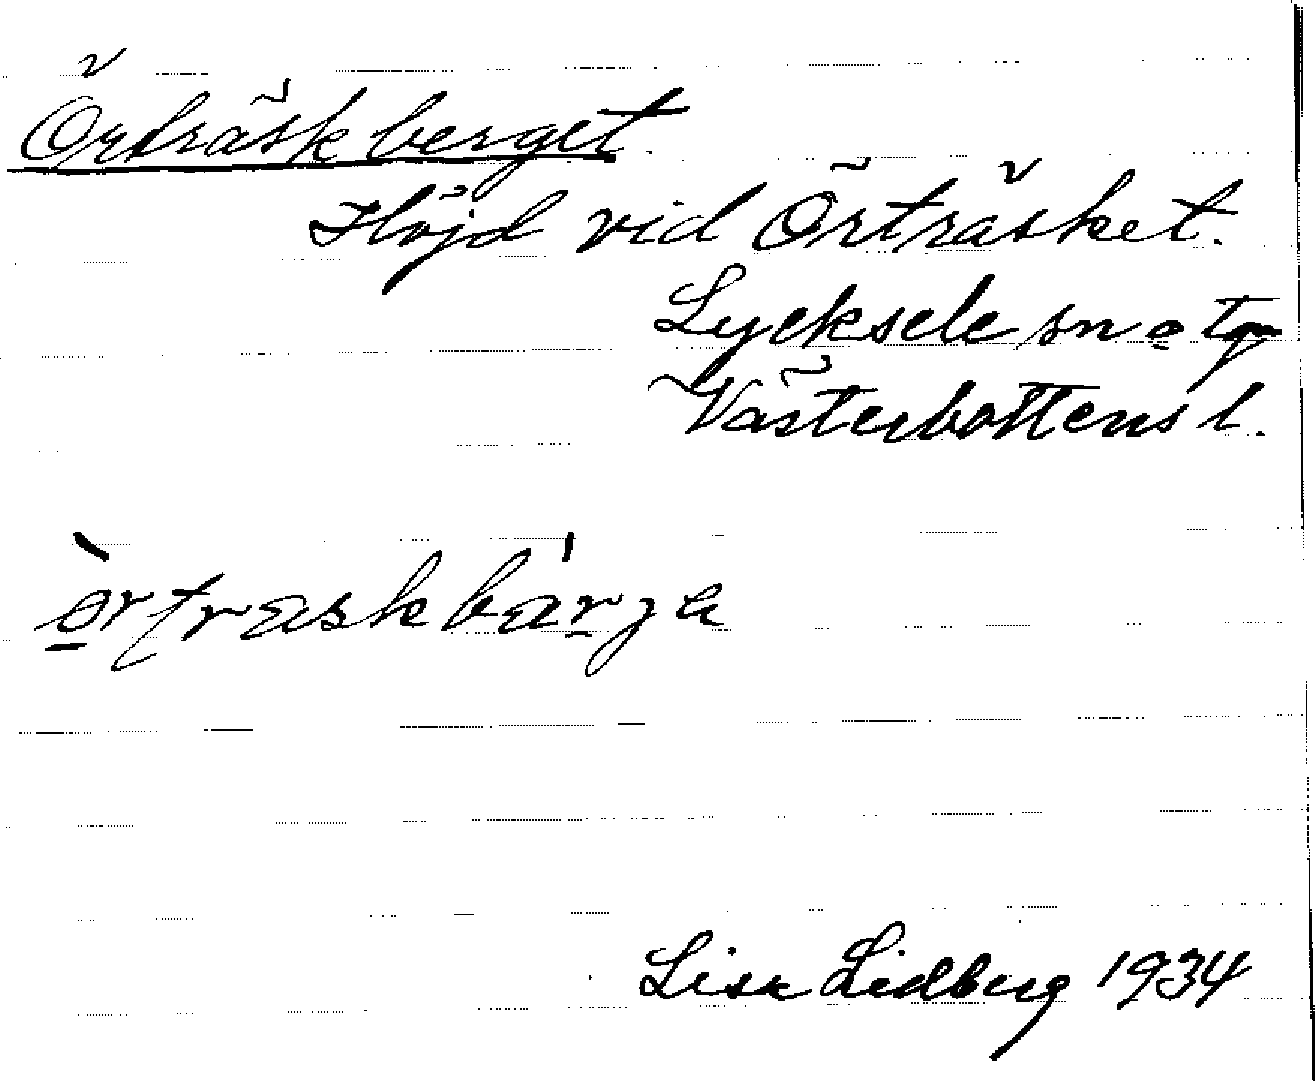 Örträskberget.
Höjd vid Örträsket.
Lycksele sn o tg
Västerbottens l.
Lisa Lidberg 1934